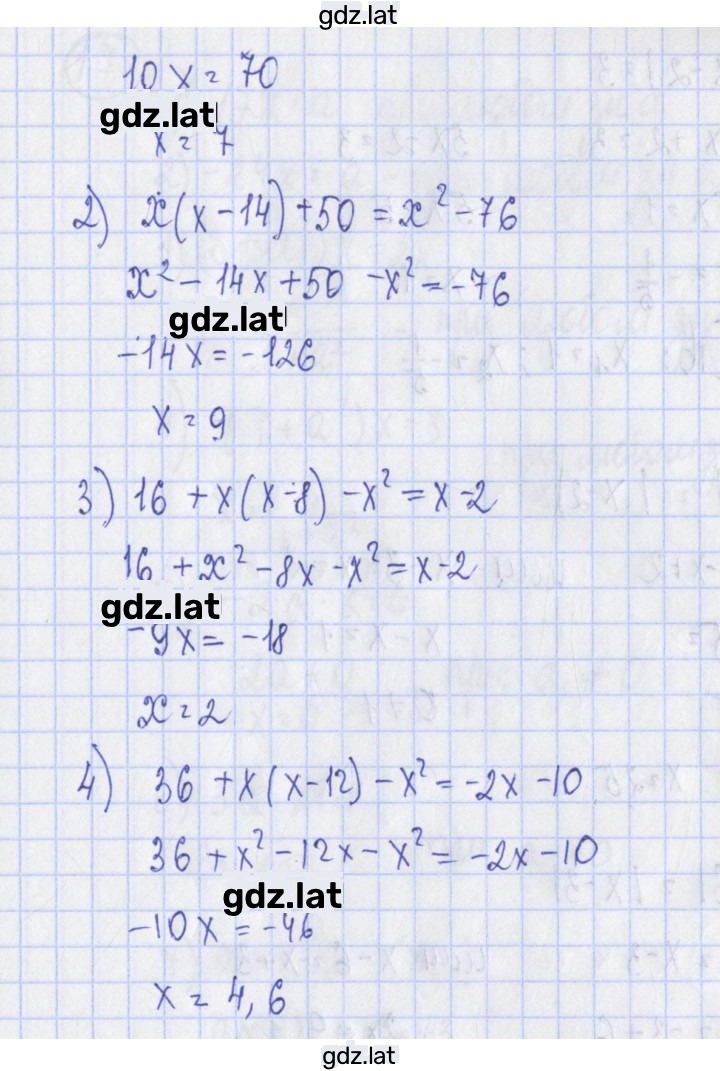 gdz.lat
10x = 70
gdz.lat
x = 7
2) x(x-14)+50 = x² - 76
x² - 14x + 50 - x² = -76
gdz.lat
-14x = -126
x = 9
3) 16 + x(x-8) - x² = x-2
16 + x² - 8x - x² = x-2
gdz.lat
-9x = -18
x = 2
4) 36 + x(x-12) - x² = -2x - 10
36 + x² - 12x - x² = -2x - 10
gdz.lat
-10x = -46
x = 4,6
gdz.lat